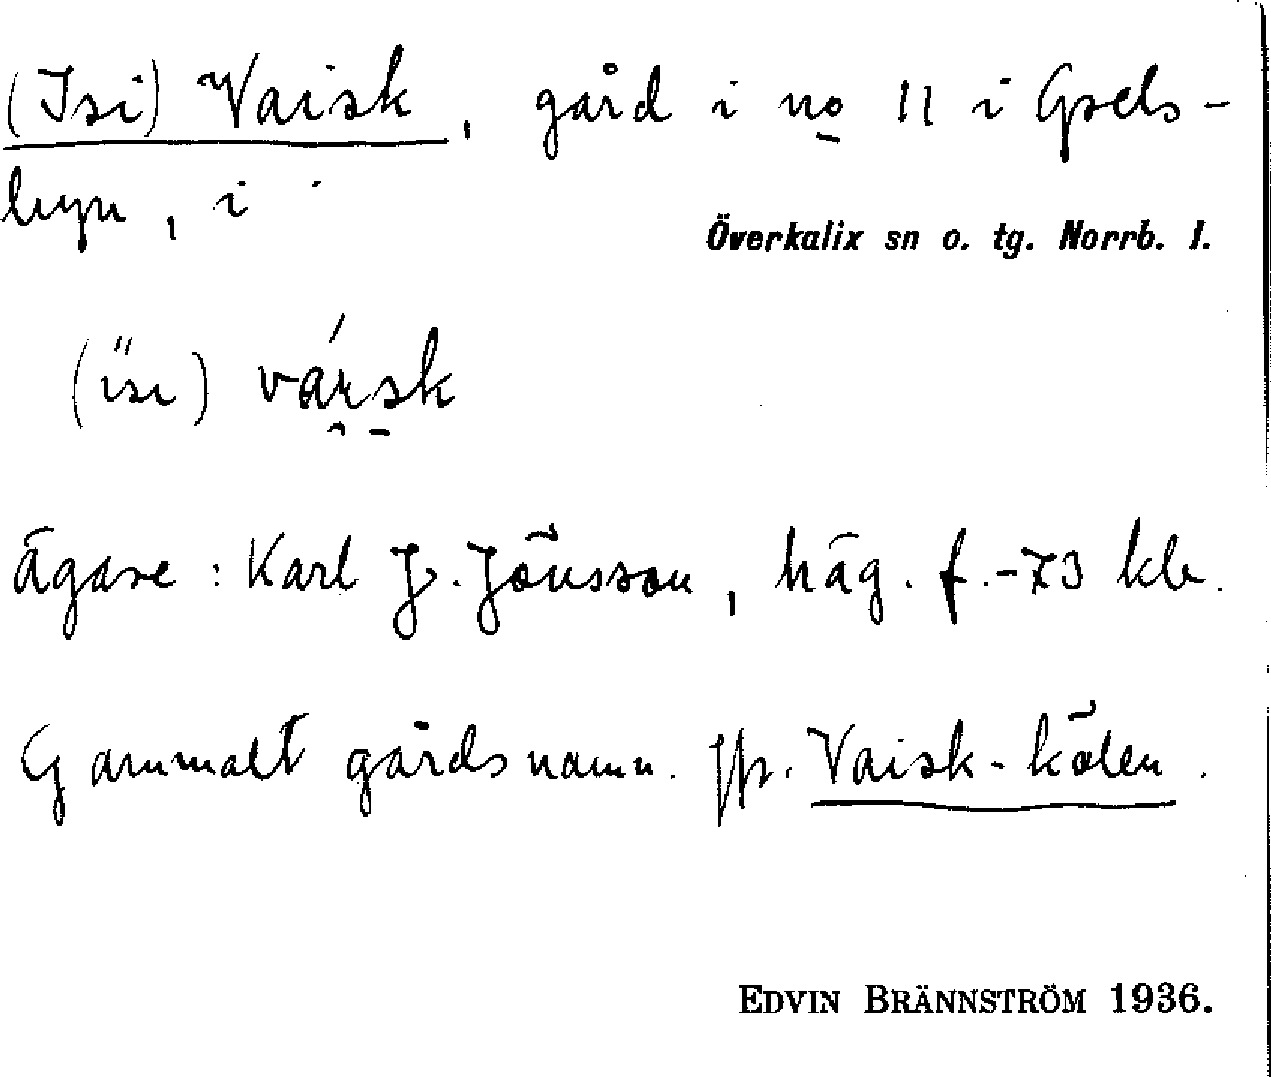 (Isi) Vaisk, gård i no 11 i Gsels-
byn, i
Överkalix sn o. tg. Norrb. l.
(isi) váisk
Ägare: Karl J. Jönsson, häg. f. -73 kla.
Gammalt gårdsnamn. Jfr. Vaisk-kölen.
EDVIN BRÄNNSTRÖM 1936.